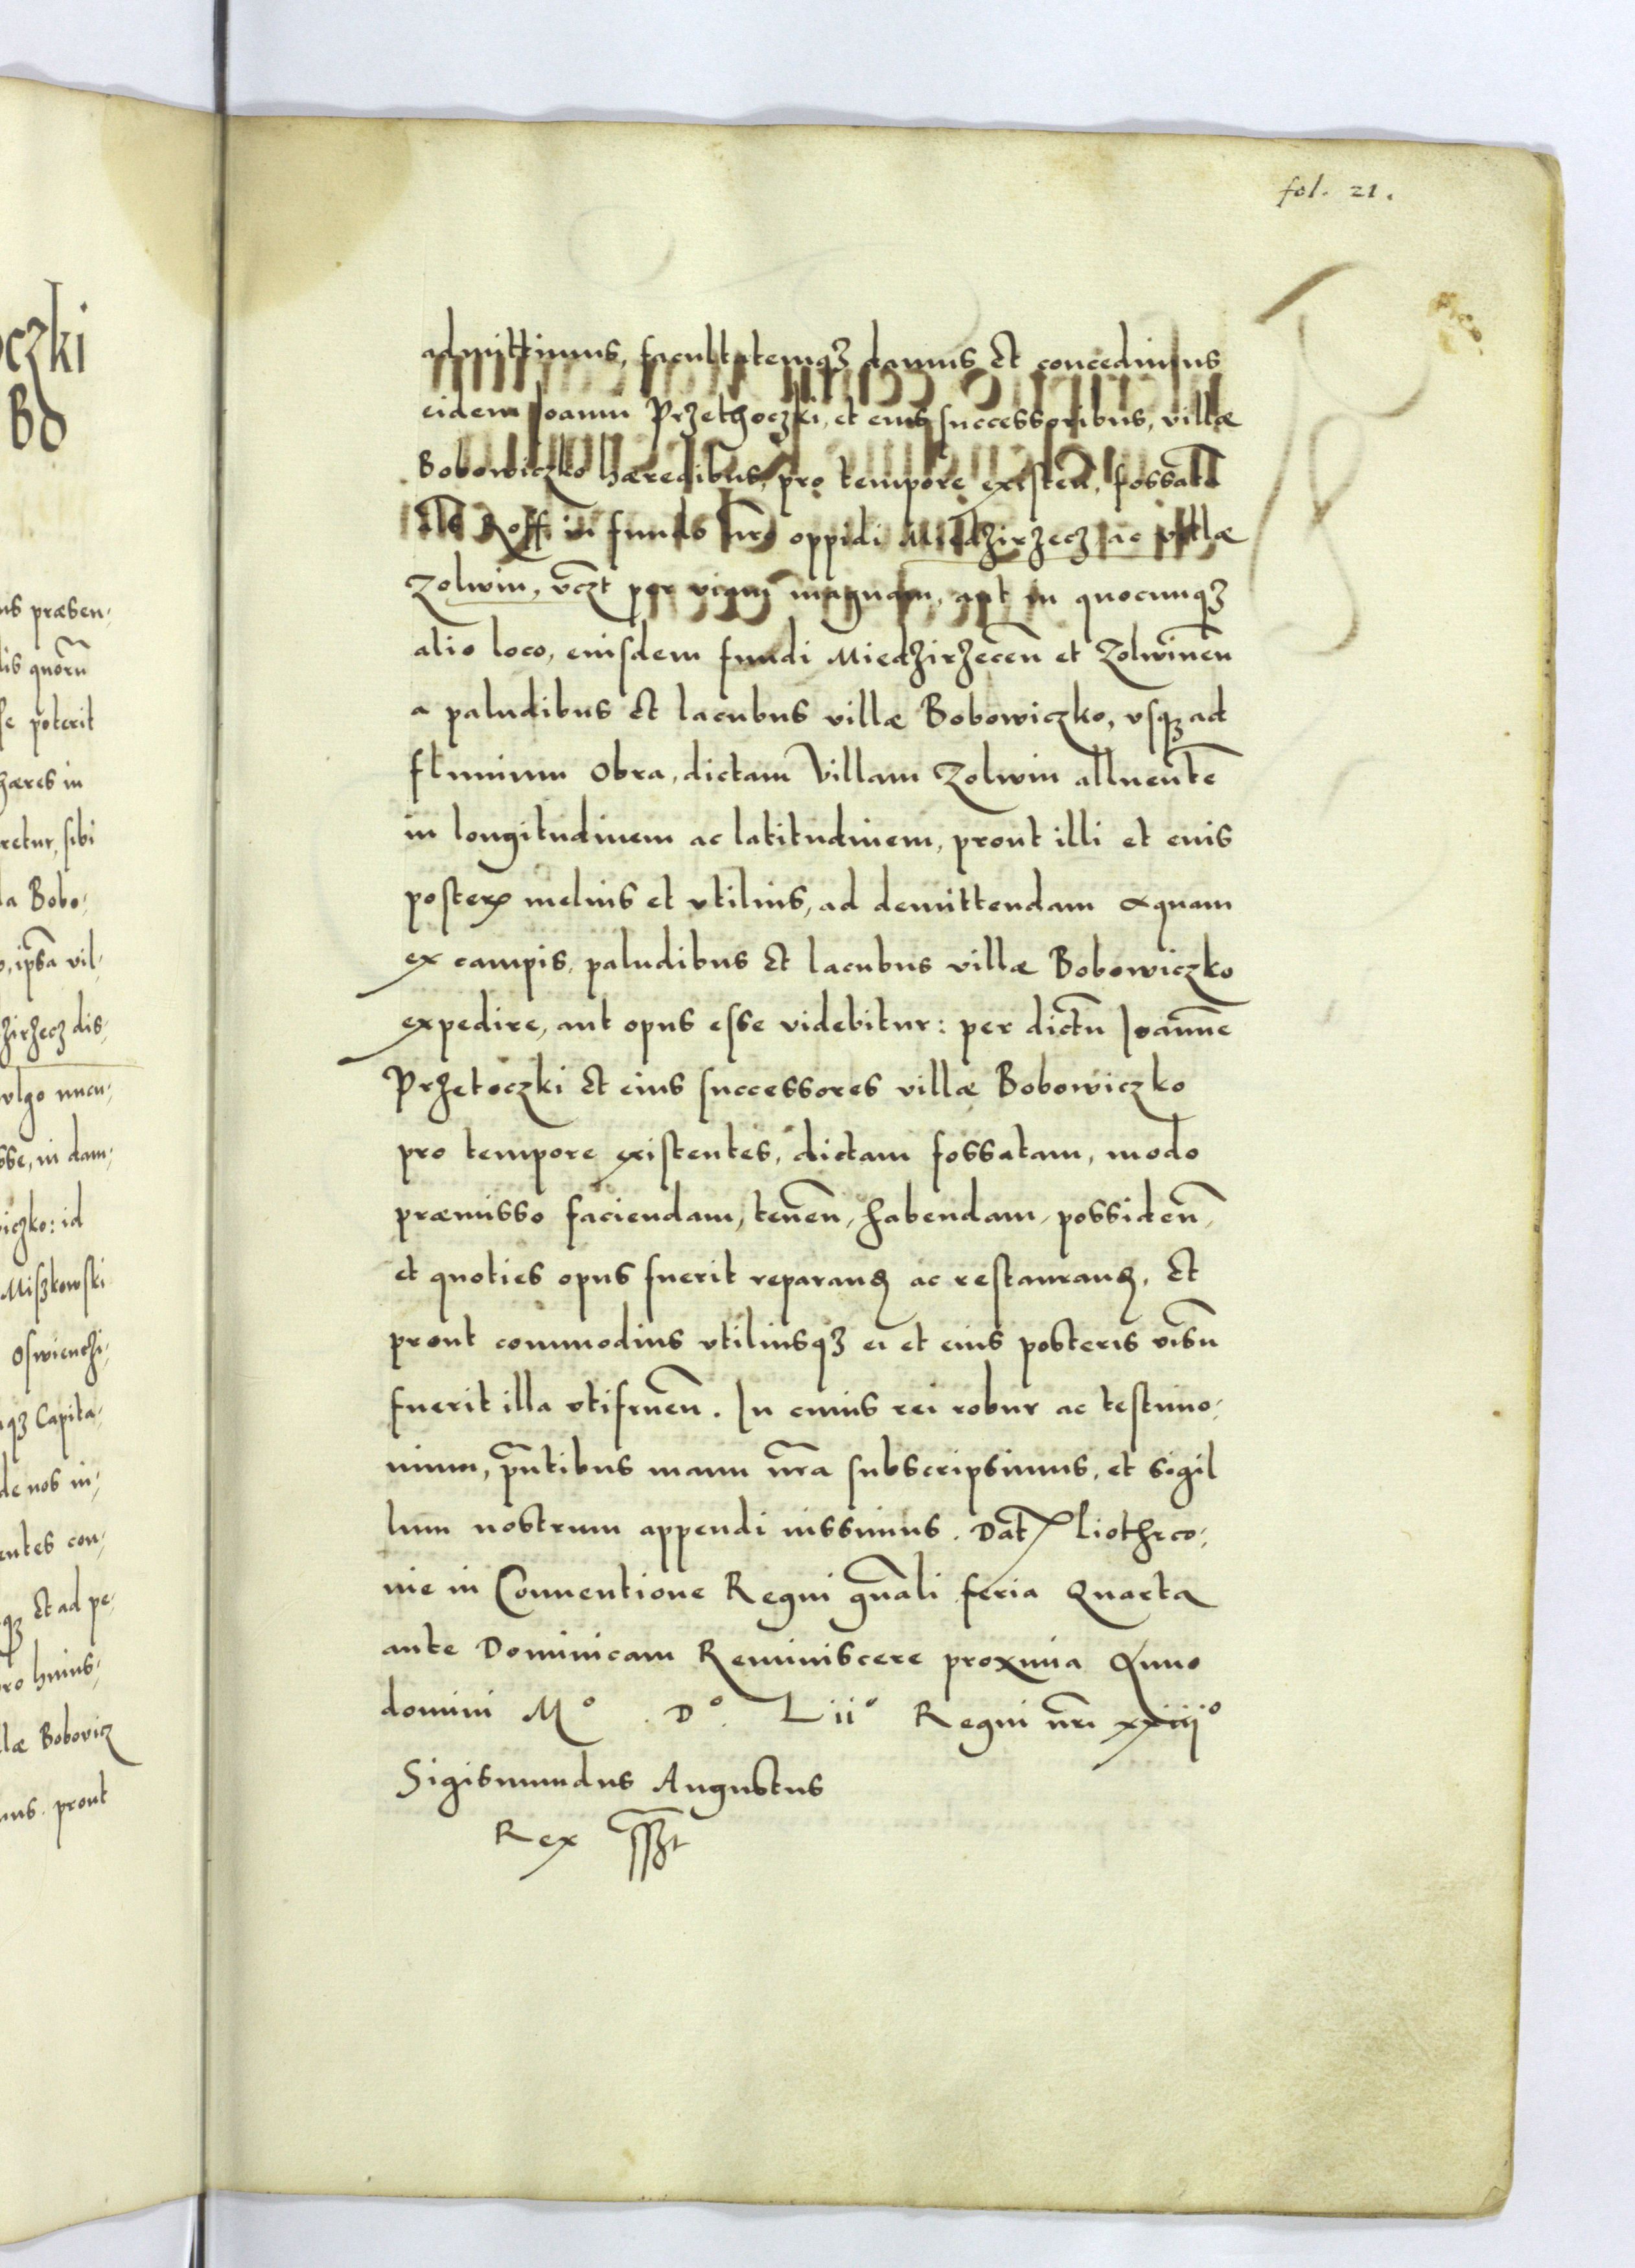 fol. 21.
admittimus, facultatemqꝫ damus et concedimus
eidem Joanni Przethoczki, et eius successoribus, villæ
Bobowiczko hæredibus, pro tempore existeñ, fossatã
als Roff in fundo nr̃o oppidi Miedzirzecz ac villæ
Zolwin, vczt per viam magnam, aut in quocunqꝫ
alio loco, eiusdem fundi Miedzirzeceñ et Zolwineñ
a paludibus et lacubus villæ Bobowiczko, vsqꝫ ad
fluuium Obra, dictam Villam Zolwin alluentẽ
in longitudinem ac latitudinem, prout illi et eius
posterꝭ melius et vtilius, ad demittendam aquam
ex campis, paludibus et lacubus villæ Bobowiczko
expedire, aut opus esse videbitur: per dictũ Joannẽ
Przetoczki et eius successores villæ Bobowiczko
pro tempore existentes, dictam fossatam, modo
præmisso faciendam, teneñ, habendam, possideñ,
et quoties opus fuerit reparanđ ac restauranđ, et
prout commodius vtiliusqꝫ ei et eius posteris visũ
fuerit illa vtifrueñ. In cuius rei robur ac testimo-
nium, pñtibus manu nr̃a subscripsimus, et sigil
lum nostrum appendi iussimus. Datꝭ Piothrco-
uie in Conuentione Regni gñali feria Quarta
ante Dominicam Reminiscere proxima Anno
domini Mº. Dº. Liiº Regni nr̃i xxiijº
Sigismundus Augustus
Rex sszt
czki
Bo
ns præsen-
lis quorũ
se poterit
hæres in
retur, sibi
la Bobo-
o, ipsã vil-
zirzecz dis-
vlgo nucu-
sse, in dam-
iczko: id
Miszkowski
Oswienthi-
qꝫ Capita-
de nos in-
entes con-
qꝫ et ad pe-
ro huius-
læ Bobovicz
mus. prout